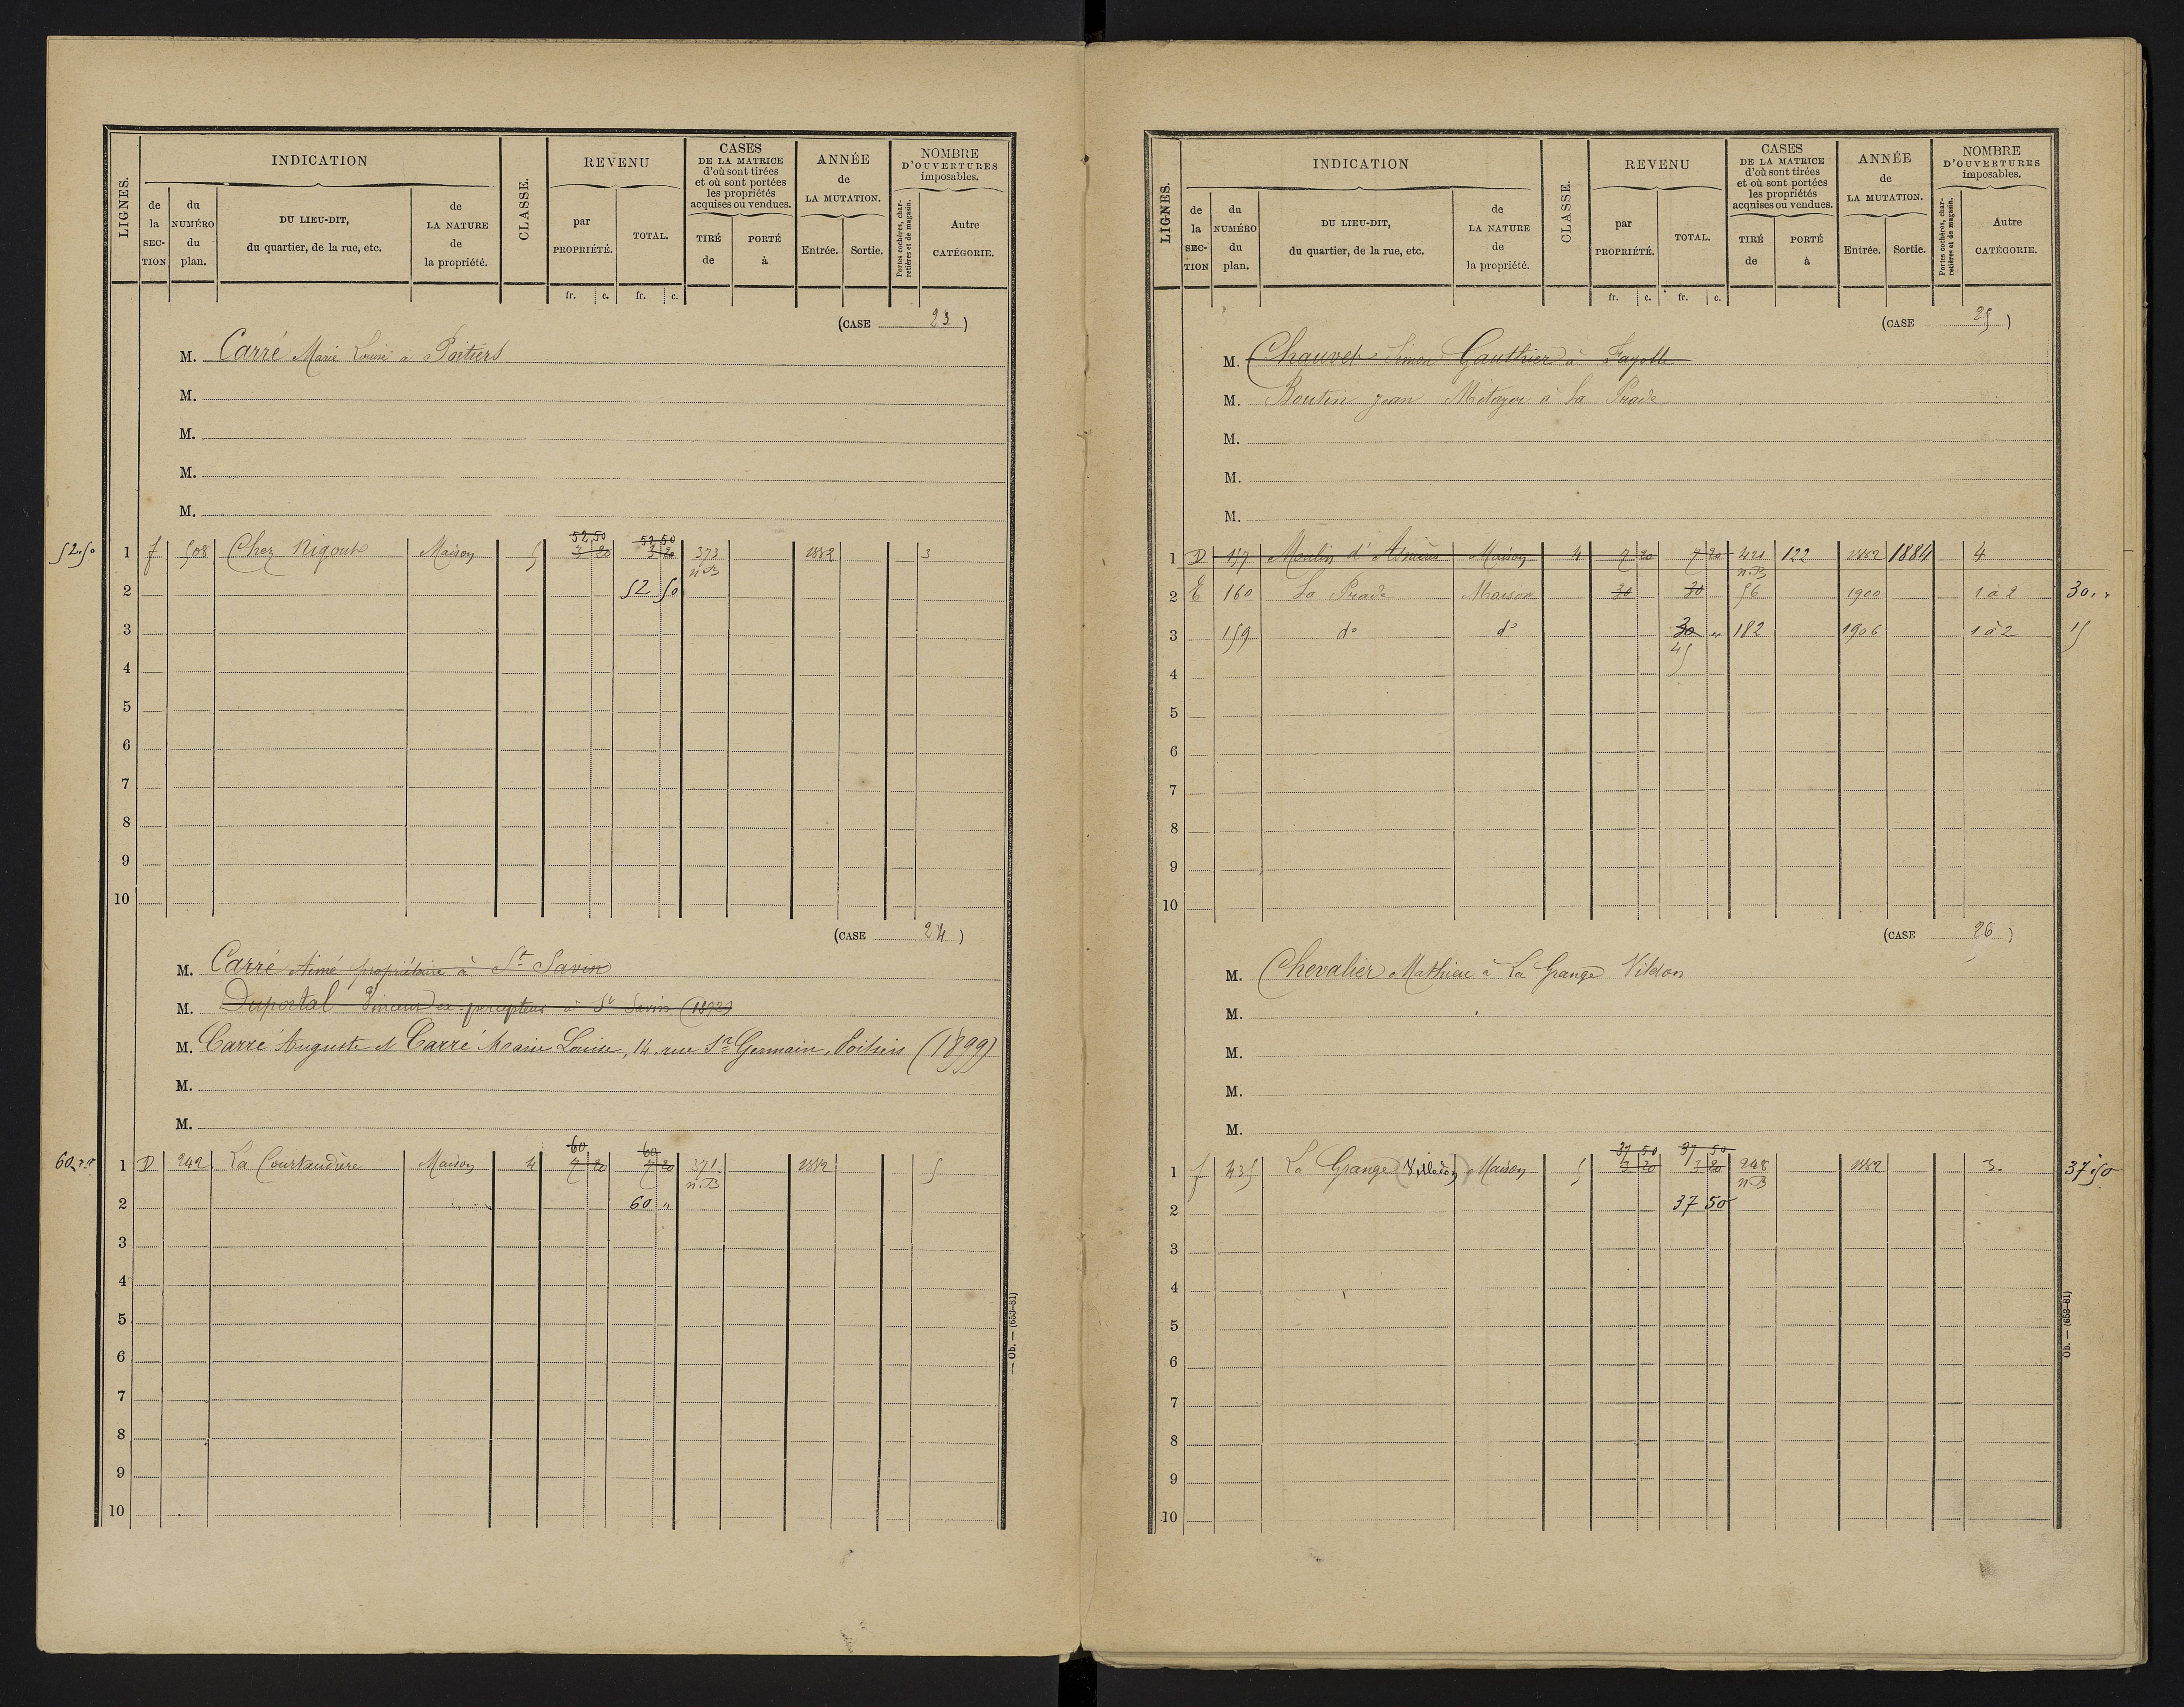 LIGNES. INDICATION CLASSE. REVENU CASES DE LA MATRICE d'où sont tirées et où sont portées les propriétés acquises ou vendues. ANNÉE de LA MUTATION. NOMBRE D'OUVERTURES imposables.
de la SECTION du NUMÉRO du plan. DU LIEU-DIT, du quartier, de la rue, etc. de LA NATURE de la propriété. par PROPRIÉTÉ. TOTAL. TIRÉ de PORTÉ à Entrée. Sortie. Portes cochères, charretières et de magasin. Autre CATÉGORIE.
fr. c. fr. c.
(CASE 23)
M. Carré Marie Louise à Poitiers
M.
M.
M.
M.
52 50 52 50
52.50 1 f 508 Chez Rigout Maison 5 3 20 3 20 373 1882 3
n.B
2 52 50
3
4
5
6
7
8
9
10
(CASE 24)
M. Carré Aimé propriétaire à St Savin
M. Duportal percepteur à St Savin (1892)
M. Carré Auguste et Carré Marie Louise, 14, rue St Germain, Poitiers (1899)
M.
M.
60 60
60 1 D 242 La Courtaudière Maison 4 7 20 7 20 371 1882 5
n.B
2 60 "
3
4
5
6
7
8
9
10
— Ob. — (653-81)
LIGNES. INDICATION CLASSE. REVENU CASES DE LA MATRICE d'où sont tirées et où sont portées les propriétés acquises ou vendues. ANNÉE de LA MUTATION. NOMBRE D'OUVERTURES imposables.
de la SECTION du NUMÉRO du plan. DU LIEU-DIT, du quartier, de la rue, etc. de LA NATURE de la propriété. par PROPRIÉTÉ. TOTAL. TIRÉ de PORTÉ à Entrée. Sortie. Portes cochères, charretières et de magasin. Autre CATÉGORIE.
fr. c. fr. c.
(CASE 25)
M. Chauvet Simon Gauthier à Fayolle
M. Boutin Jean Métayer à La Prade
M.
M.
M.
1 D 157 Moulin d'Asnières Maison 4 7 20 7 20 421 122 1882 1884 4
n.B
2 E 160 La Prade Maison 30 30 56 1900 1 à 2 30
3 159 do do 30 182 1906 1 à 2 15
45
4
5
6
7
8
9
10
(CASE 26)
M. Chevalier Mathieu à La Grange Vildon
M.
M.
M.
M.
37 50 37 50
1 f 435 La Grange Maison 5 3 20 3 20 248 1882 3. 37.50
n.B
2 37 50
3
4
5
6
7
8
9
10
Ob. — (653-81)